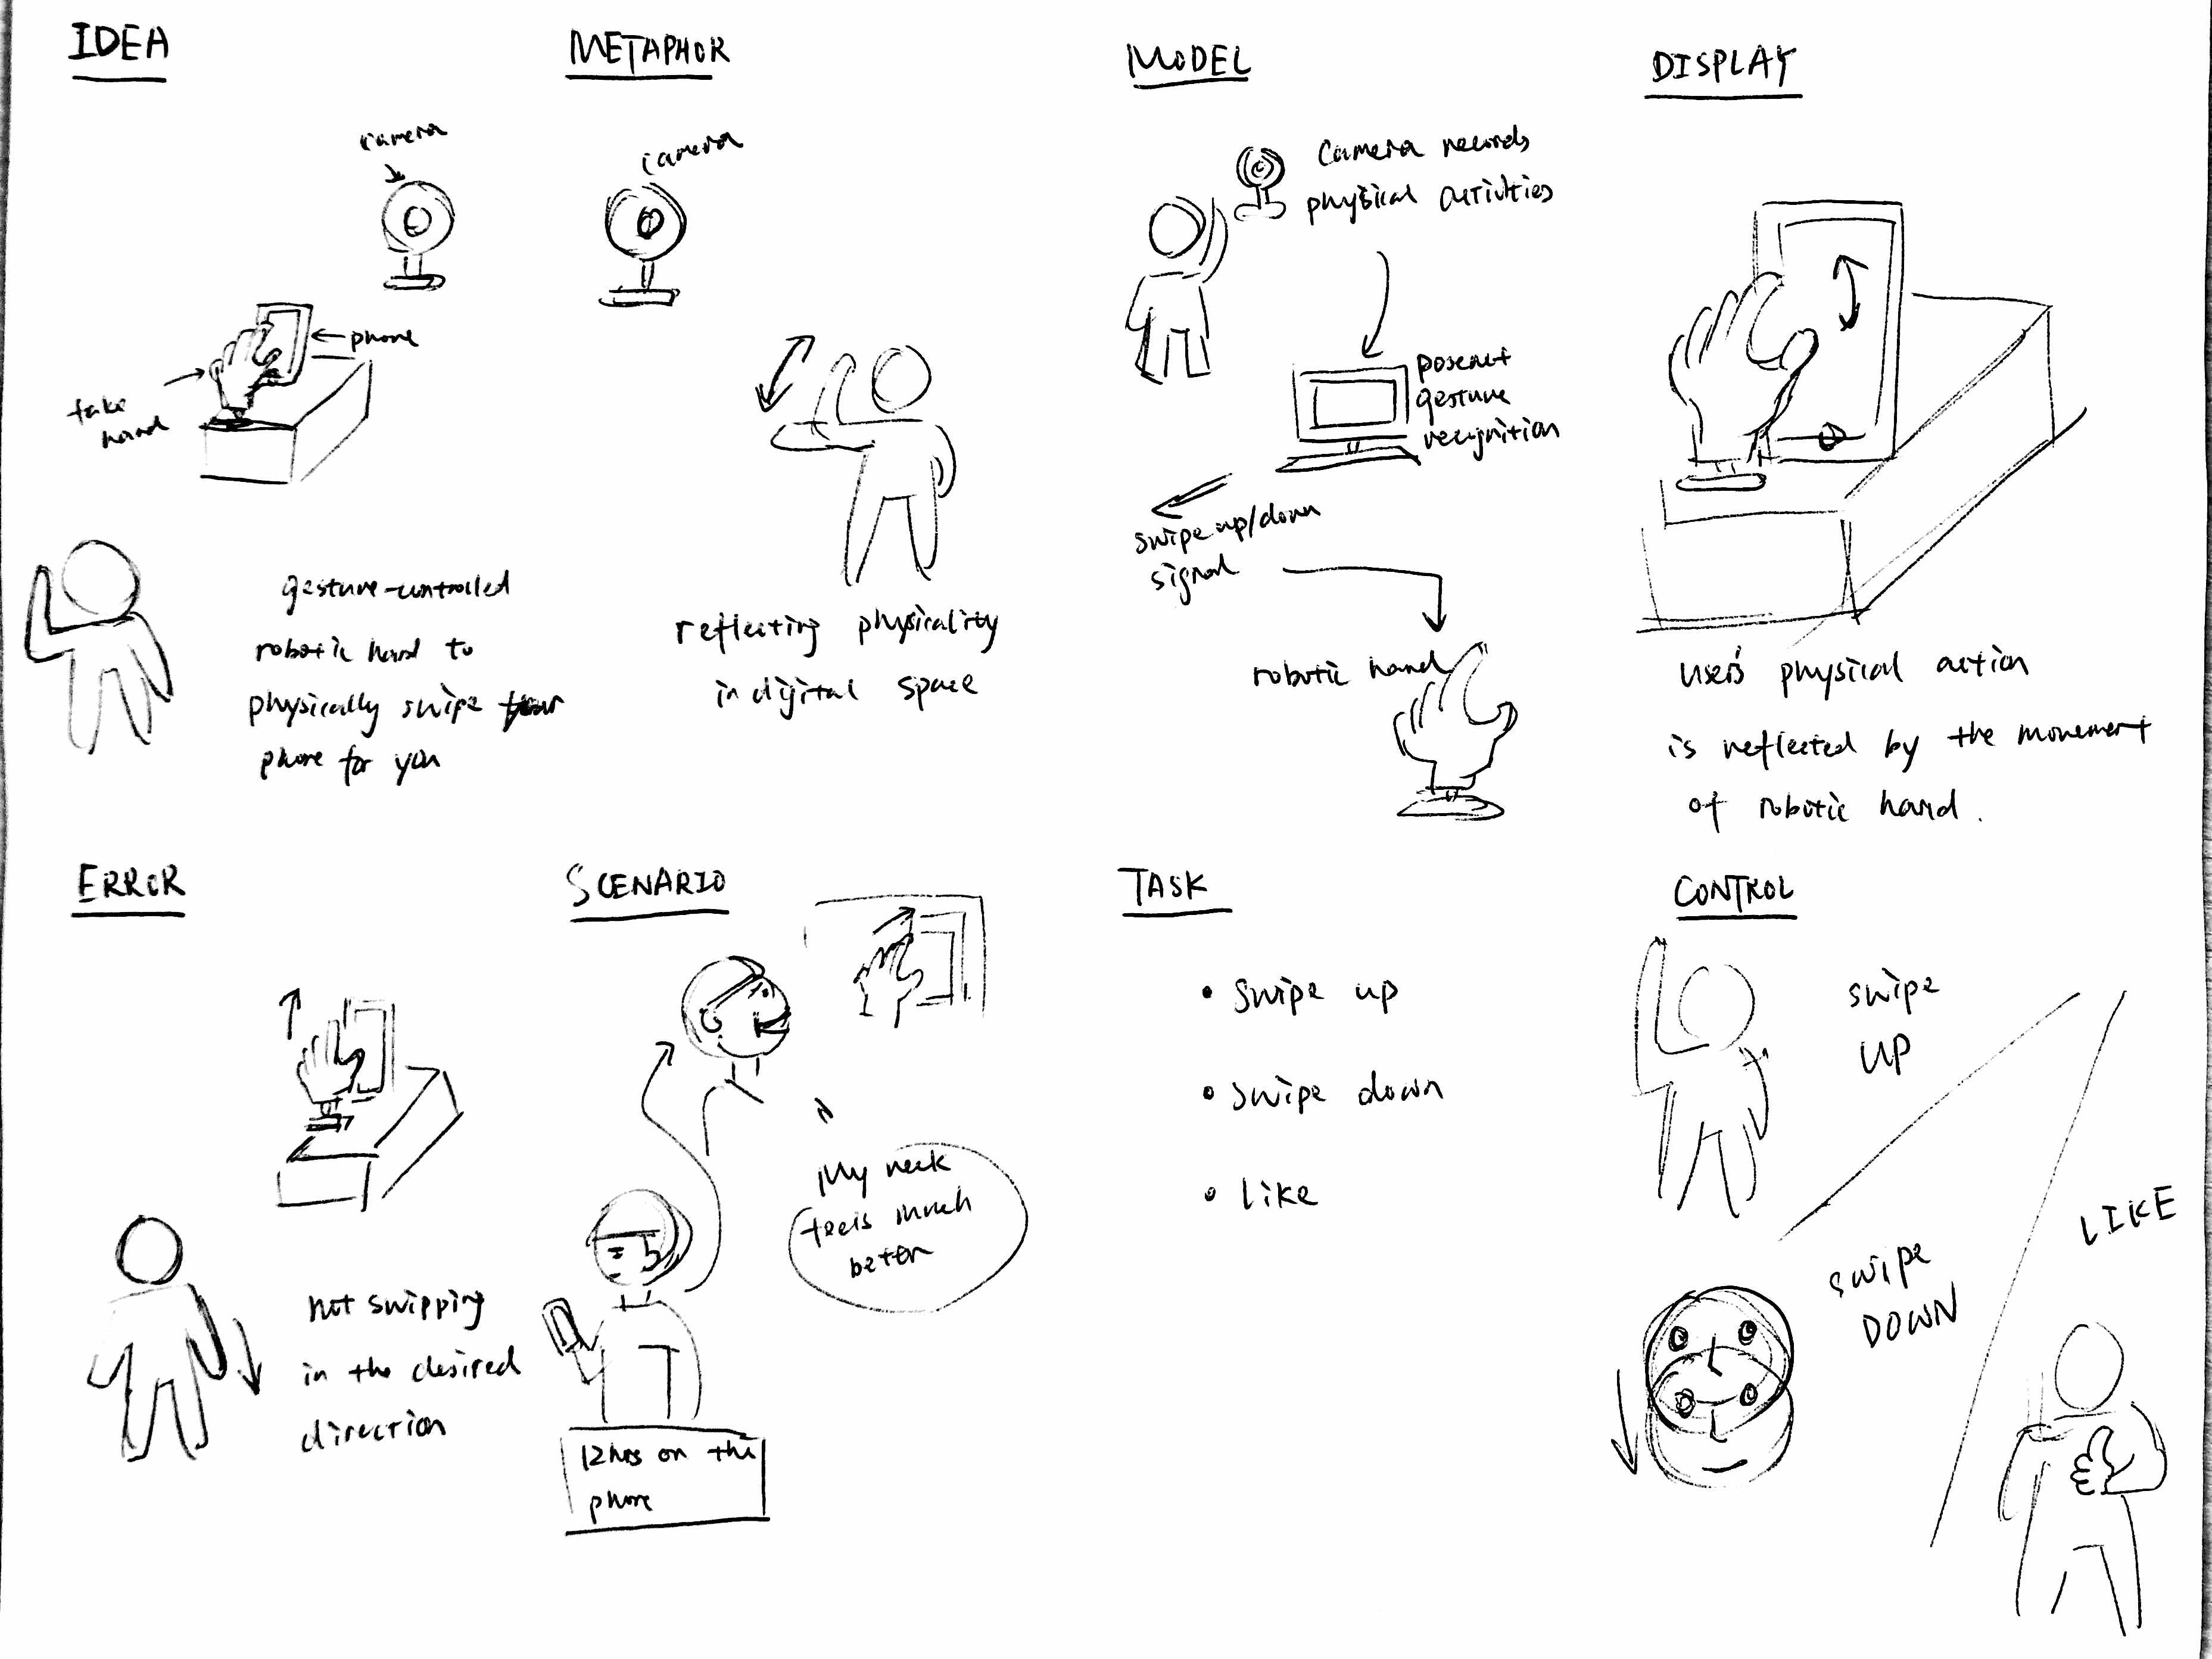 IDEA
camera
phone
fake
hand
gesture-controlled
robotic hand to
physically swipe
phone for you
METAPHOR
camera
reflecting physicality
in digital space
MODEL
Camera records
physical activities
posenet
gesture
recognition
swipe up/down
signal
robotic hand
DISPLAY
user's physical action
is reflected by the movement
of robotic hand.
ERROR
not swipping
in the desired
direction
SCENARIO
My neck
feels much
better
12hrs on the
phone
TASK
• Swipe up
• Swipe down
• like
CONTROL
swipe
UP
swipe
DOWN
LIKE